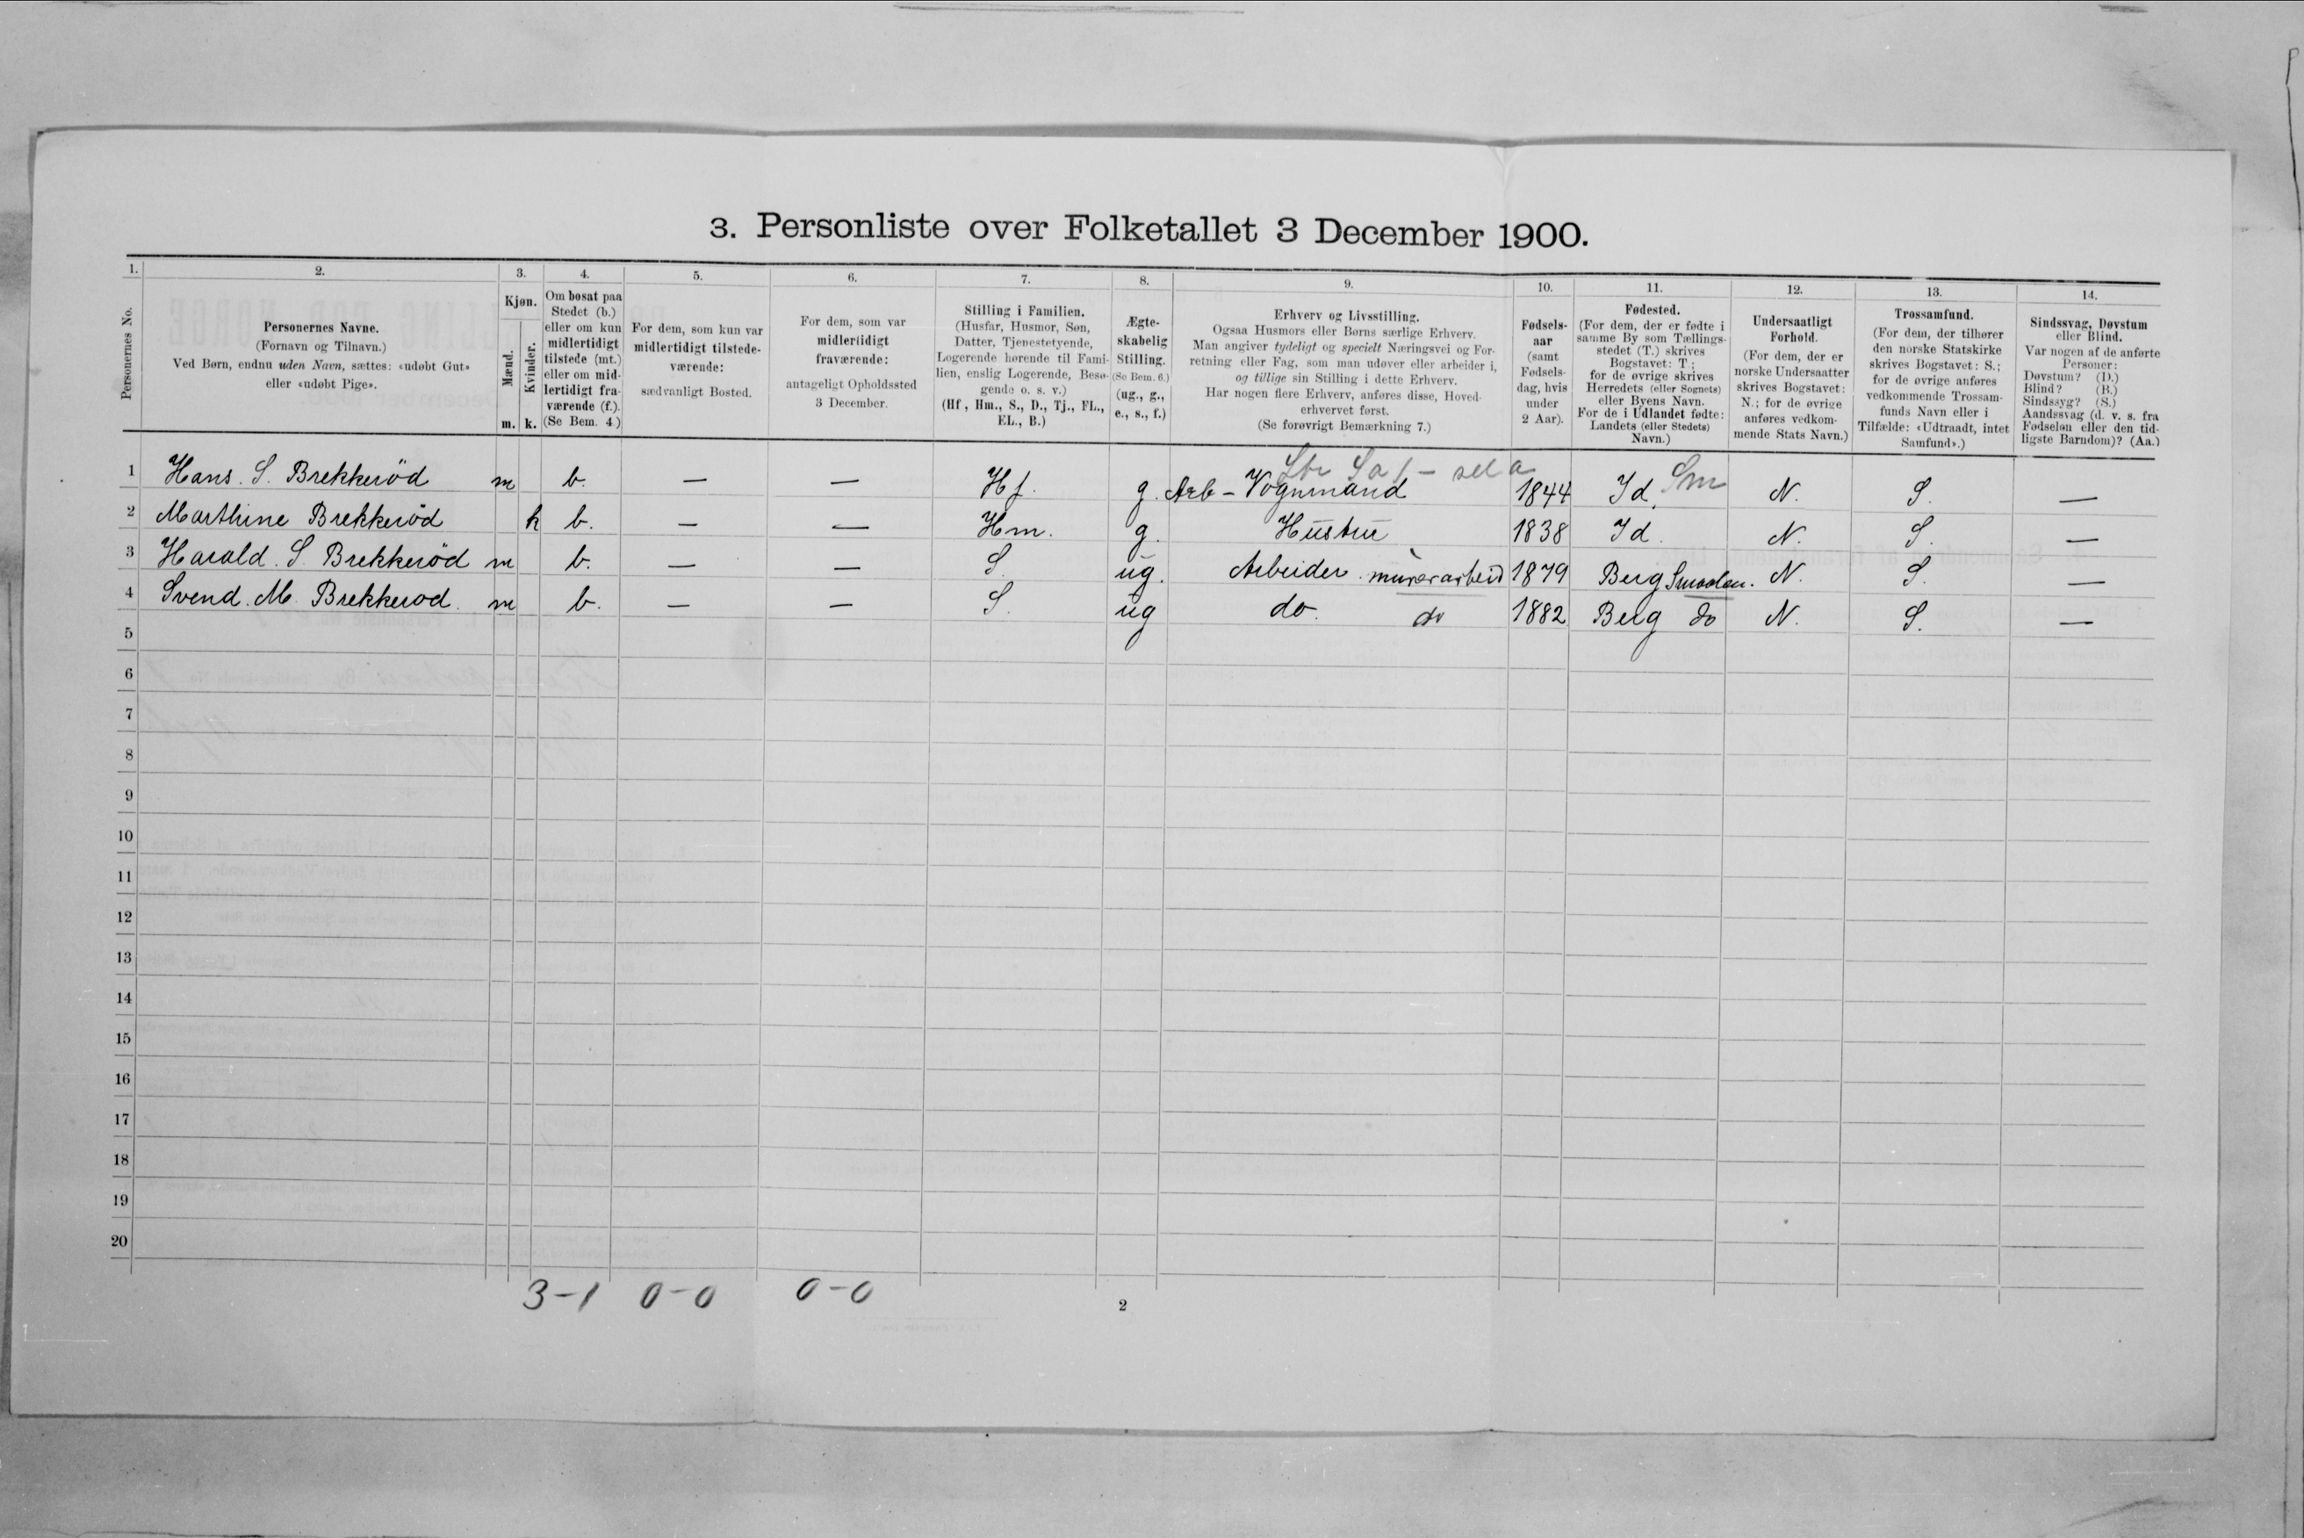 3. Personliste over Folketallet 3 December 1900.
1. 2. 3. 4. 5. 6. 7. 8. 9. 10. 11. 12. 13. 14.
Personernes No.
Personernes Navne.
(Fornavn og Tilnavn.)
Ved Børn, endnu uden Navn, sættes: «udøbt Gut»
eller «udøbt Pige».
Kjøn.
Mænd.
m.
Kvinder.
k.
Om bosat paa
Stedet (b.)
eller om kun
midlertidigt
tilstede (mt.)
eller om mid-
lertidigt fra-
værende (f.).
(Se Bem. 4.)
For dem, som kun var
midlertidigt tilstede-
værende:
sædvanligt Bosted.
For dem, som var
midlertidigt
fraværende:
antageligt Opholdssted
3 December.
Stilling i Familien.
(Husfar, Husmor, Søn,
Datter, Tjenestetyende,
Logerende hørende til Fami-
lien, enslig Logerende, Besø-
gende o. s. v.)
(Hf., Hm., S., D., Tj., FL.,
EL., B.)
Ægte-
skabelig
Stilling.
(Se Bem. 6.)
(ug., g.,
e., s., f.)
Erhverv og Livsstilling.
Ogsaa Husmors eller Børns særlige Erhverv.
Man angiver tydeligt og specielt Næringsvei og For-
retning eller Fag, som man udøver eller arbeider i,
og tillige sin Stilling i dette Erhverv.
Har nogen flere Erhverv, anføres disse, Hoved-
erhvervet først.
(Se forøvrigt Bemærkning 7.)
Fødsels-
aar
(samt
Fødsels-
dag, hvis
under
2 Aar).
Fødested.
(For dem, der er fødte i
samme By som Tællings-
stedet (T.) skrives
Bogstavet: T.;
for de øvrige skrives
Herredets (eller Sognets)
eller Byens Navn.
For de i Udlandet fødte:
Landets (eller Stedets)
Navn.)
Undersaatligt
Forhold.
(For dem, der er
norske Undersaatter
skrives Bogstavet:
N.; for de øvrige
anføres vedkom-
mende Stats Navn.)
Trossamfund.
(For dem, der tilhører
den norske Statskirke
skrives Bogstavet: S.;
for de øvrige anføres
vedkommende Trossam-
funds Navn eller i
Tilfælde: «Udtraadt, intet
Samfund».)
Sindssvag, Døvstum
eller Blind.
Var nogen af de anførte
Personer:
Døvstum? (D.)
Blind? (B.)
Sindssyg? (S.)
Aandssvag (d. v. s. fra
Fødselen eller den tid-
ligste Barndom)? (Aa.)
1 Hans. S. Brekkeröd m b. — — Hf. g. Arb - Vognmand 1844 Id. Sm N. S. —
2 Marthine Brekkeröd k b. — — Hm. g. Hustru 1838 Id. N. S. —
3 Harald. S. Brekkeröd m b. — — S. ug. Arbeider. murerarbeid 1879 Berg Smaalen. N. S. —
4 Svend. M. Brekkerod. m b. — — S. ug do. do 1882 Berg do N. S. —
5
6
7
8
9
10
11
12
13
14
15
16
17
18
19
20
3-1 0-0 0-0
2